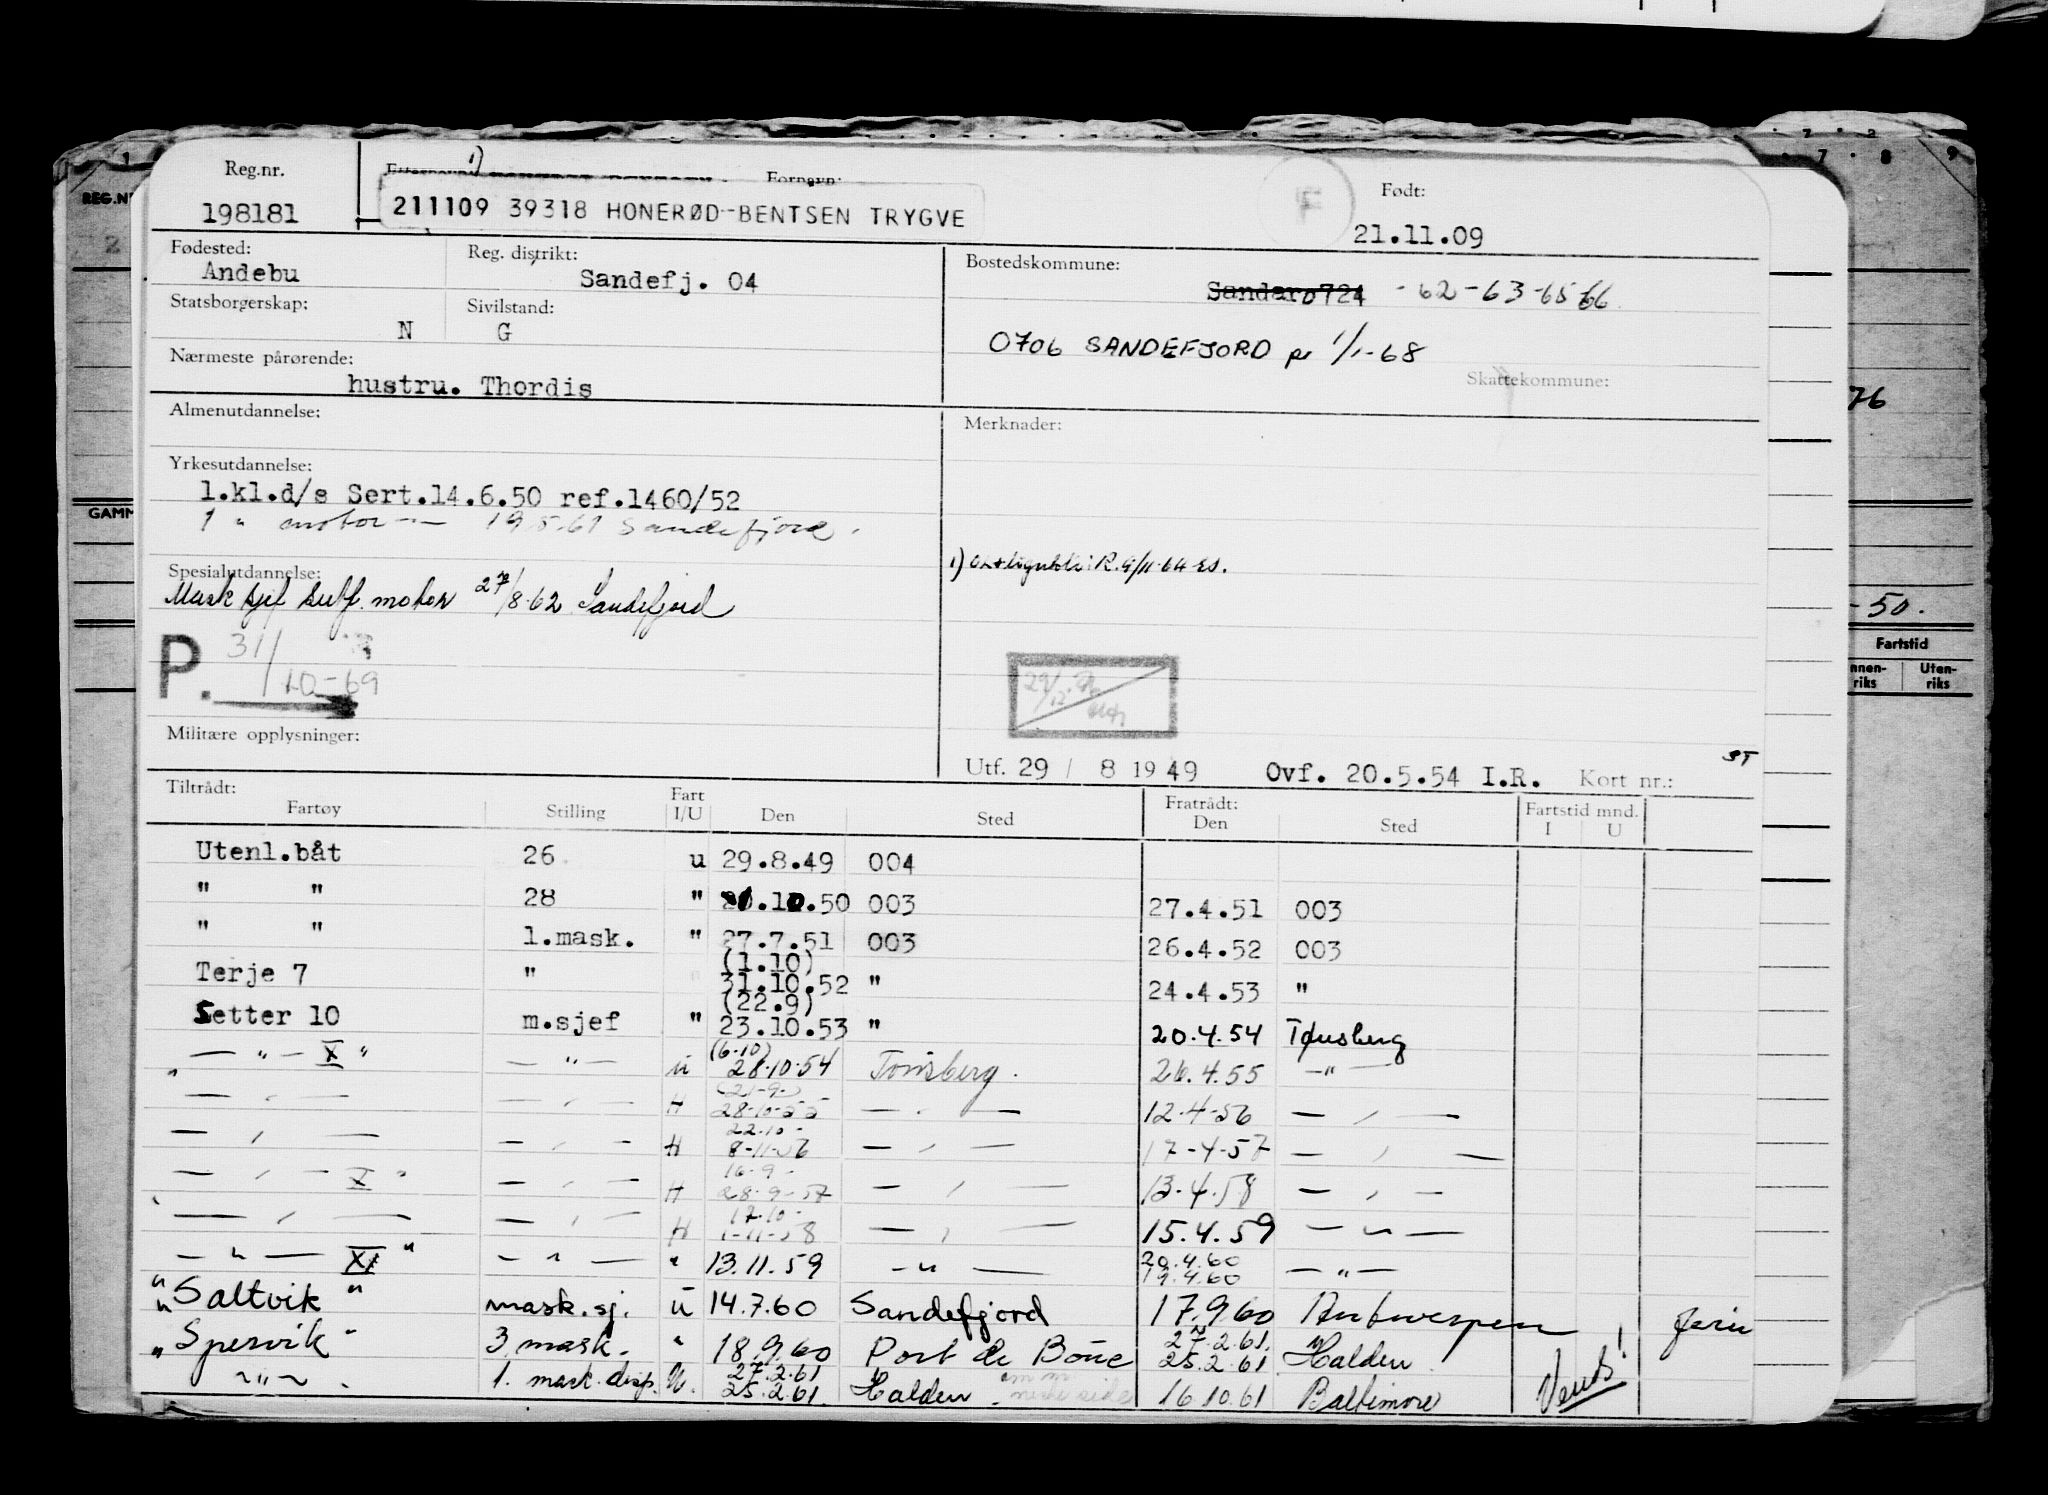 Reg.nr.
198181
1)
Fornavn:
211109 39318 HONERØD-BENTSEN TRYGVE
F
Født:
21.11.09
Fødested:
Andebu
Reg. distrikt:
Sandefj. 04
Bostedskommune:
Sandar 0724 -62-63-65 66
Statsborgerskap:
N
Sivilstand:
G
0706 SANDEFJORD pr 1/1-68
Skattekommune:
Nærmeste pårørende:
hustru. Thordis
Almenutdannelse:
Merknader:
Yrkesutdannelse:
1.kl.d/s Sert.14.6.50 ref.1460/52
1 " motor —"— 19.5.61 Sandefjord.
Spesialutdannelse:
Mask sjef motor 27/8.62 Sandefjord
P. 31/10-69
Militære opplysninger:
Utf. 29 / 8 1949 Ovf. 20.5.54 I.R. Kort nr.:
Tiltrådt:
Fartøy Stilling Fart I/U Den Sted
Fratrådt:
Den Sted
Fartstid mnd.
I U
Utenl.båt 26 u 29.8.49 004
" " 28 " .10.50 003 27.4.51 003
" " 1.mask. " 27.7.51 003 26.4.52 003
(1.10)
Terje 7 " 31.10.52 " 24.4.53 "
(22.9)
Setter 10 m.sjef " 23.10.53 " 20.4.54 Tønsberg
(6.10)
— " — X " — " — u 28.10.54 Tønsberg. 26.4.55 — " —
(21-9-)
— " — — " — H 28-10-55 — " — 12-4-56 — " —
22.10-
— " — — " — H 8-11-56 — " — 17-4-57 — " —
16-9-
— " — X " — " — H 28-9-57 — " — 13-4-58 — " —
17-10-
— " — — " — H 1-11-58 — " — 15.4.59 — " —
20.4.60
— " — XI " — " — " 13.11.59 — " — 19.4.60 — " —
"Saltvik" mask.sj. u 14.7.60 Sandefjord 17.9.60 Antwerpen
27.2.61.
"Spervik" 3 mask. " 18.9.60 Port de Bouc 25.2.61 Halden.
27.2.61
— " — 1. mask. disp. U. 25.2.61. Halden 16.10.61 Baltimore
Vend!
REG.N
GAMM
76
-50.
Fartstid
nnen-riks Uten-riks